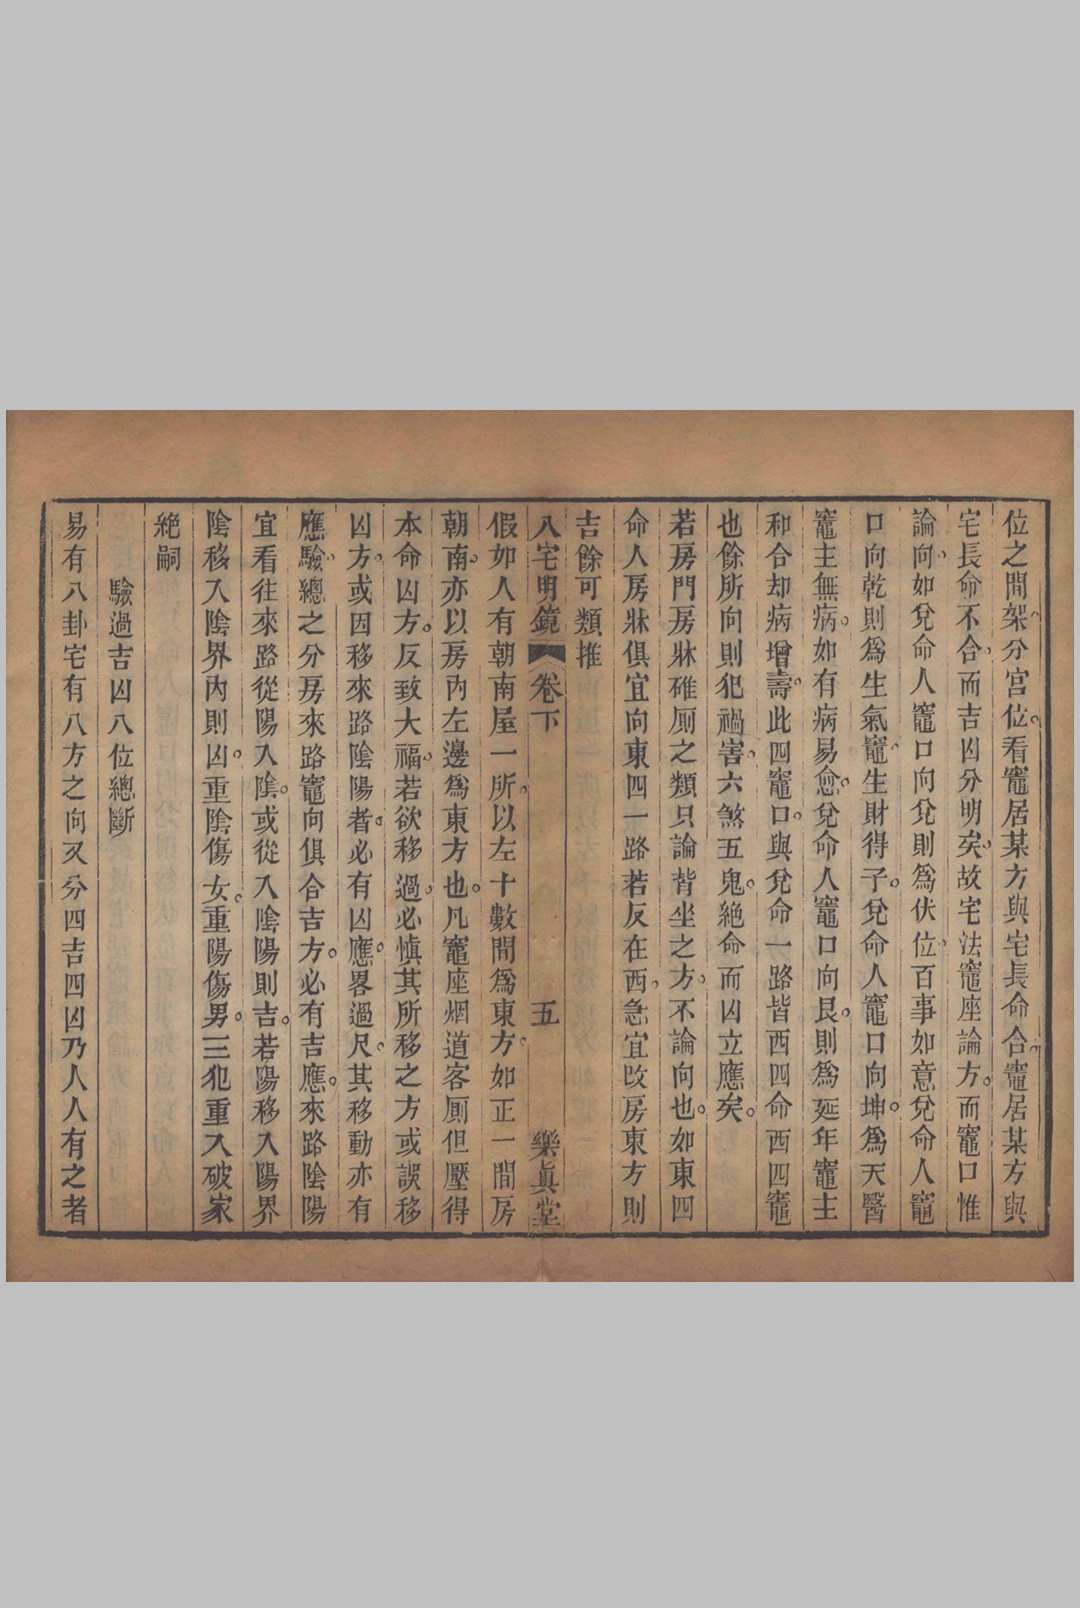 位之間架分宮位。看竈居某方與宅長命合。竈居某方與
宅長命不合。而吉凶分明矣。故宅法竈座論方。而竈口惟
論向。如兌命人竈口向兌則爲伏位。百事如意兌命人竈
口向乾則爲生氣竈。生財得子。兌命人竈口向坤。爲天醫
竈主無病。如有病易愈。兌命人竈口向艮。則爲延年竈主
和合却病增壽。此四竈口。與兌命一路皆西四命西四竈
也餘所向則犯禍害。六煞五鬼。絕命而凶立應矣。
若房門房牀碓厠之類只論背坐之方。不論向也。如東四
命人房牀俱宜向東四一路若反在西。急宜改房東方則
吉餘可類推
八宅明鏡 卷下 五 樂眞堂
假如人有朝南屋一所。以左十數間爲東方。如正一間房
朝南。亦以房內左邊爲東方也。凡竈座烟道客厠但壓得
本命凶方。反致大福。若欲移過。必慎其所移之方或誤移
凶方。或因移來路陰陽者。必有凶應。畧過尺。其移動亦有
應驗。總之分房來路竈向俱合吉方。必有吉應。來路陰陽
宜看往來路從陽入陰。或從入陰陽則吉。若陽移入陽界
陰移入陰界內則凶。重陰傷女。重陽傷男。三犯重入破家
絕嗣
驗過吉凶八位總斷
易有八卦宅有八方之向又分四吉四凶乃人人有之者